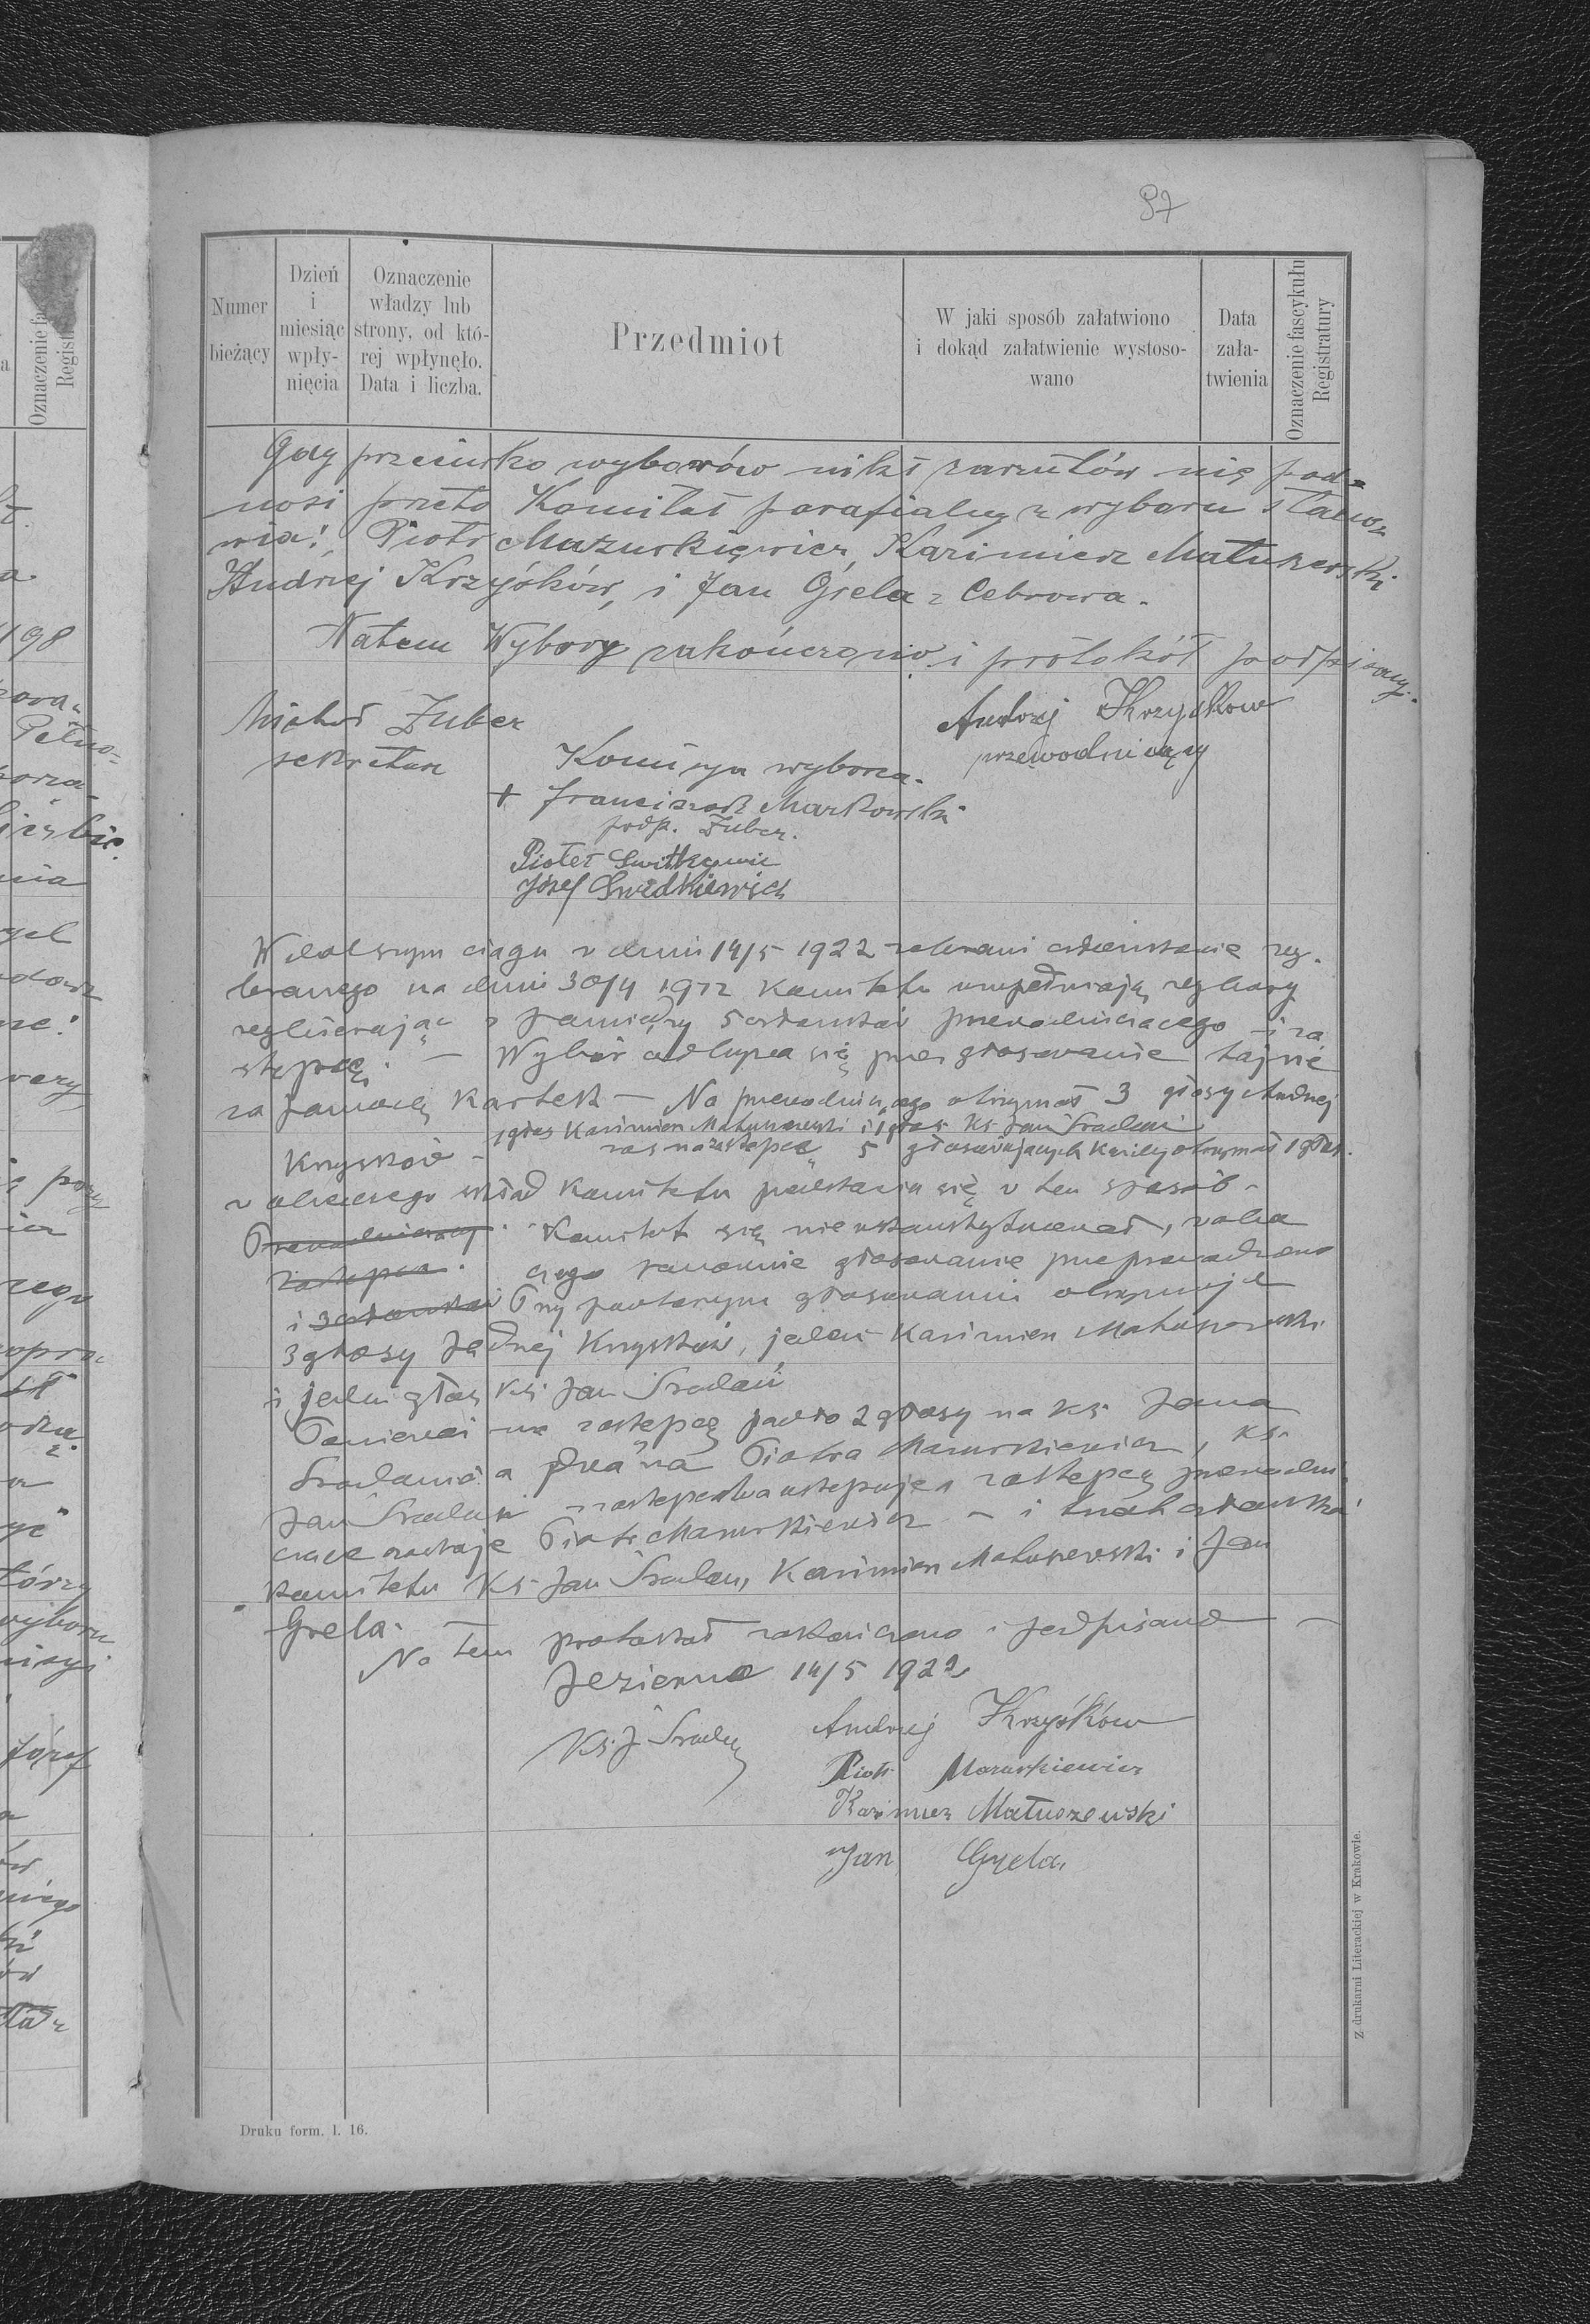 97
Numer bieżący
Dzień i miesiąc wpły-nięcia
Oznaczenie władzy lub strony, od któ-rej wpłynęło. Data i liczba.
Przedmiot
W jaki sposób załatwiono i dokąd załatwienie wystoso-wano
Data zała-twienia
Oznaczenie fascykułu Registratury
Gdy przeciwko wyborów nikt zarzutów nie pod-
nosi przeto Komitet parafialny z wyboru stano-
wią: Piotr Mazurkiewicz, Kazimierz Matuszewski
Andrzej Krzyśków, i Jan Grela z Cebrowa.
Natem Wybory zakończono i protokół podpisany.
Michał Zuber
sekretarz
Andrzej Krzyśkow
przewodniczący
Komisya wyborcza
+ Franciszek Markowski
podp. Zuber.
Piotr
Józef
W dalszym ciągu w dniu 14/5 1922 zebrani członkowie wy-
branego na dniu 30/4 1922 Komitetu uzupełniają wybory
wybierając z pomiędzy 5 członków przewodniczącego i za
stępcę. — Wybór odbywa się przez głosowanie tajne
za pomocą kartek — Na przewodniczącego otrzymał 3 głosy Andrzej
1 głos Kazimierz Matuszewski i 1 głos Ks Jan
Krzyśków - zaś na zastępcę 5 głosujących każdy otrzymał 1 głos.
wobec czego skład Komitetu przedstawia się w ten sposób -
Przewodniczący Komitet się nie ukonstytuował, wobec
Zastępca. czego ponownie głosowanie przeprowadzono
i 3 członków Przy powtórnym głosowaniu otrzymuje
3 głosy Jędrzej Krzyśków, jeden Kazimierz Matuszewski
i jeden głos Ks. Jan
Ponieważ na zastępcę padło 2 głosy na Ks. Jana
a dwa na Piotra Mazurkiewicza, Ks.
Jan zastępstwa ustępuje a zastępcą przewodni
czące zostaje Piotr Mazurkiewicz - i trzech członków
Komitetu Ks. Jan Kazimierz Matuszewski i Jan
Grela.
Na tem protokół zakończono i podpisano —
Jezierna 14/5 1922
Ks. J.
Andrzej Krzyśków
Piotr Mazurkiewicz
Kazimierz Matuszewski
Jan Grela.
Druku form. l. 16.
Z drukarni Literackiej w Krakowie.